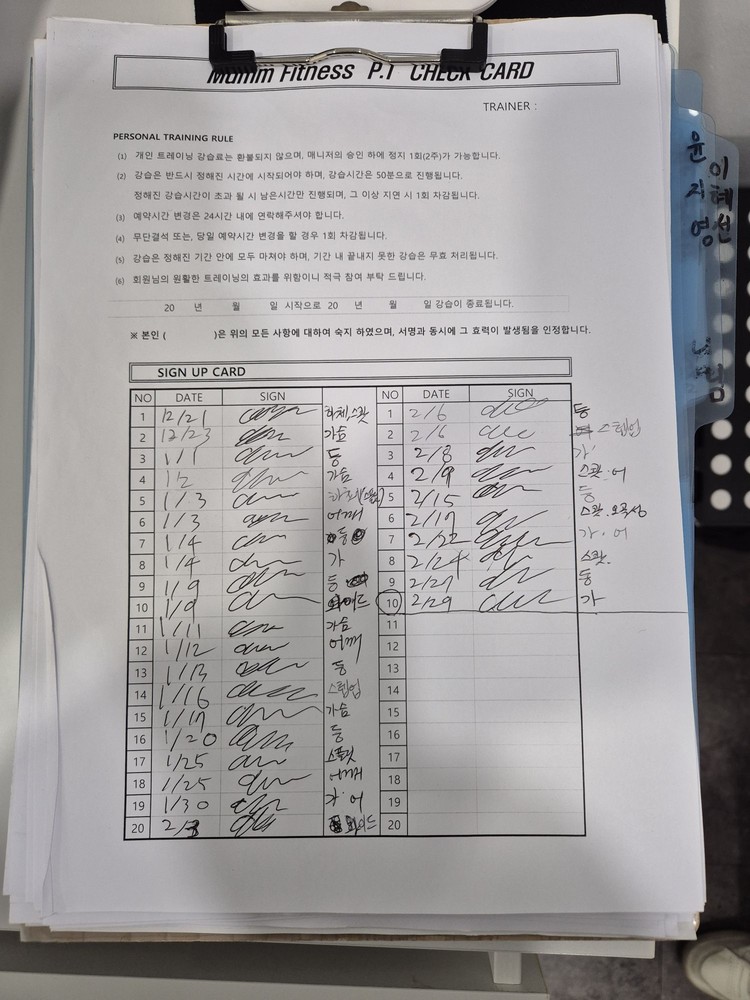 Fitness P.T CHECK CARD
TRAINER :
PERSONAL TRAINING RULE
(1) 개인 트레이닝 강습료는 환불되지 않으며, 매니저의 승인 하에 정지 1회(2주)가 가능합니다.
(2) 강습은 반드시 정해진 시간에 시작되어야 하며, 강습시간은 50분으로 진행됩니다.
정해진 강습시간이 초과 될 시 남은시간만 진행되며, 그 이상 지면 시 1회 차감됩니다.
(3) 예약시간 변경은 24시간 내에 연락해주셔야 합니다.
(4) 무단결석 또는, 당일 예약시간 변경을 할 경우 1회 차감됩니다.
(5) 강습은 정해진 기간 안에 모두 마쳐야 하며, 기간 내 끝내지 못한 강습은 무효 처리됩니다.
(6) 회원님의 원활한 트레이닝의 효과를 위함이니 적극 참여 부탁 드립니다.
20 년 월 일 시작으로 20 년 월 일 강습이 종료됩니다.
※ 본인 ( )은 위의 모든 사항에 대하여 숙지 하였으며, 서명과 동시에 그 효력이 발생됨을 인정합니다.
SIGN UP CARD
NO DATE SIGN NO DATE SIGN
1 12/21 하체,스쾃 1 2/6 등
2 12/23 가슴 2 2/6 스텝업
3 1/1 등 3 2/8 가
4 1/2 가슴 4 2/9 스쾃.어
5 1/3 5 2/15 등
6 1/3 어깨 6 2/17 스쾃.
7 1/4 등 7 2/22 가.어
8 1/4 가 8 2/24 스쾃.
9 1/9 등 9 2/27 등
10 1/9 10 2/29 가
11 1/11 가슴 11
12 1/12 어깨 12
13 1/13 등 13
14 1/16 스텝업 14
15 1/17 가슴 15
16 1/20 등 16
17 1/25 스쿼트 17
18 1/25 어깨 18
19 1/30 가.어 19
20 2/3 와이드 20
윤지영
이혜선
님